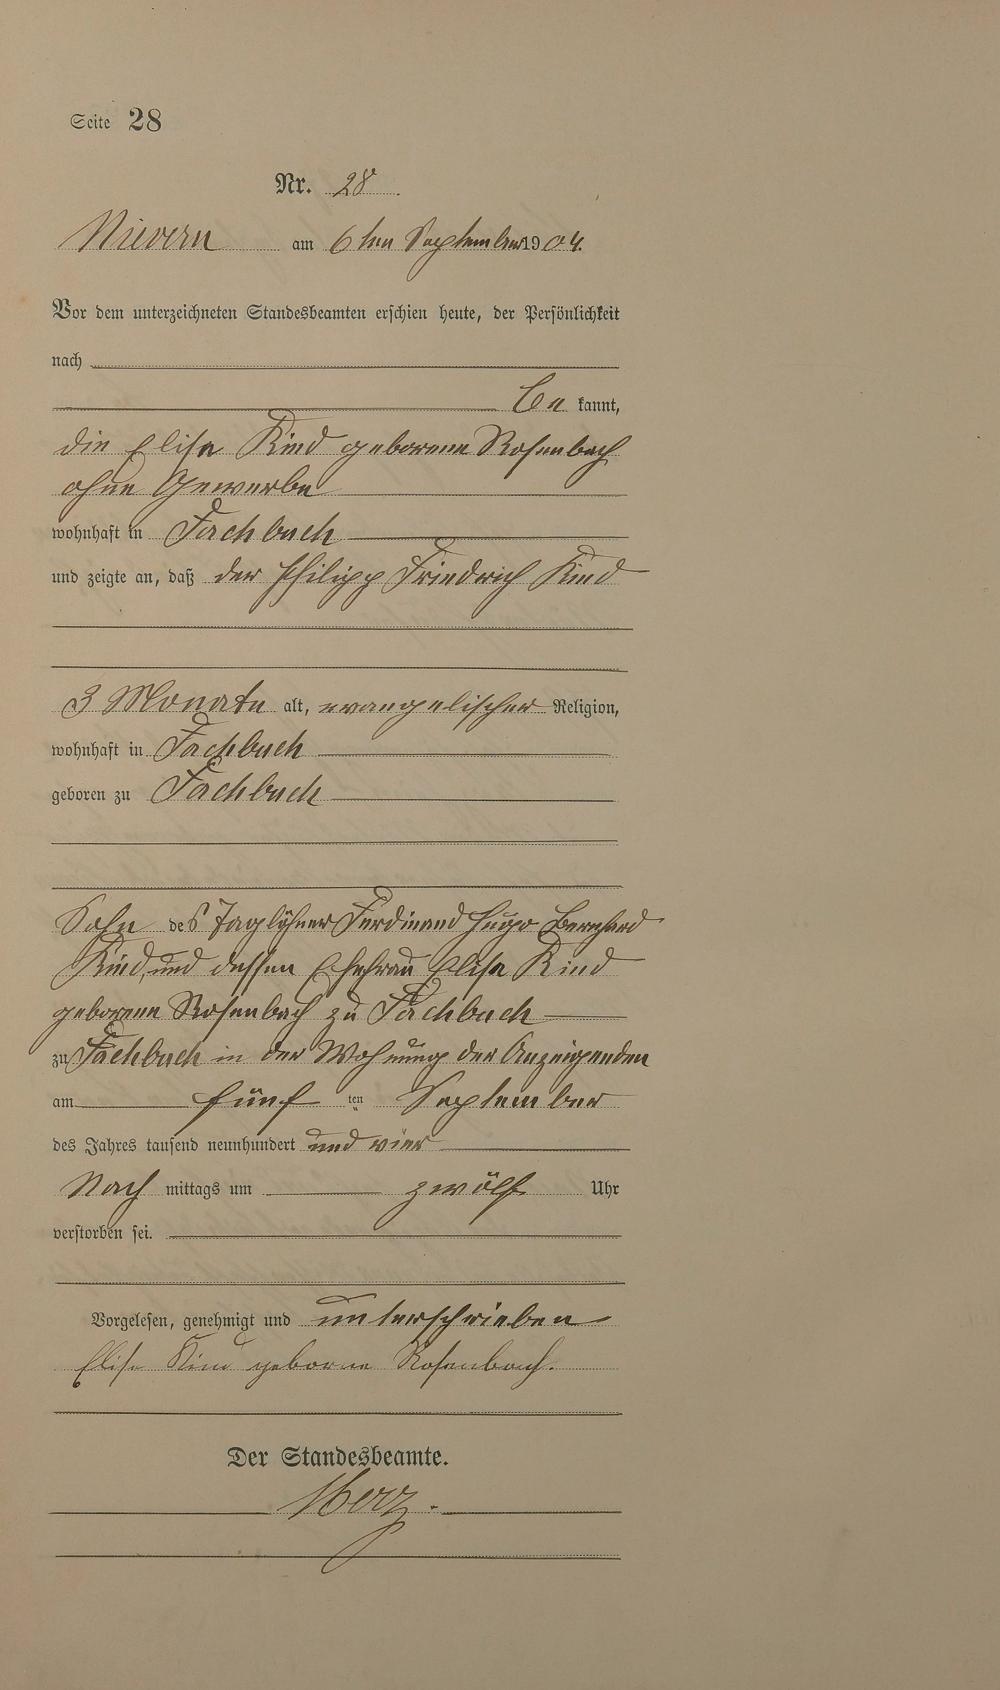 Seite 28
Nr. 28
Nievern am 6ten September 1904.
Vor dem unterzeichneten Standesbeamten erschien heute, der Persönlichkeit
nach
be kannt,
die Elise Kind geborene Rosenbach
ohne Gewerbe
wohnhaft in Fachbach
und zeigte an, daß der Philipp Friedrich Kind
3 Monate alt, evangelischer Religion,
wohnhaft in Fachbach
geboren zu Fachbach
Sohn des Taglöhner Ferdinand Hugo Bernhard
Kind, und dessen Ehefrau Elise Kind
geborene Rosenbach zu Fachbach
zu Fachbach in der Wohnung der Anzeigenden
am fünf ten September
des Jahres tausend neunhundert und vier
Nach mittags um zwölf Uhr
verstorben sei.
Vorgelesen, genehmigt und unterschrieben
Elise Kind geborne Rosenbach.
Der Standesbeamte.
Merz.